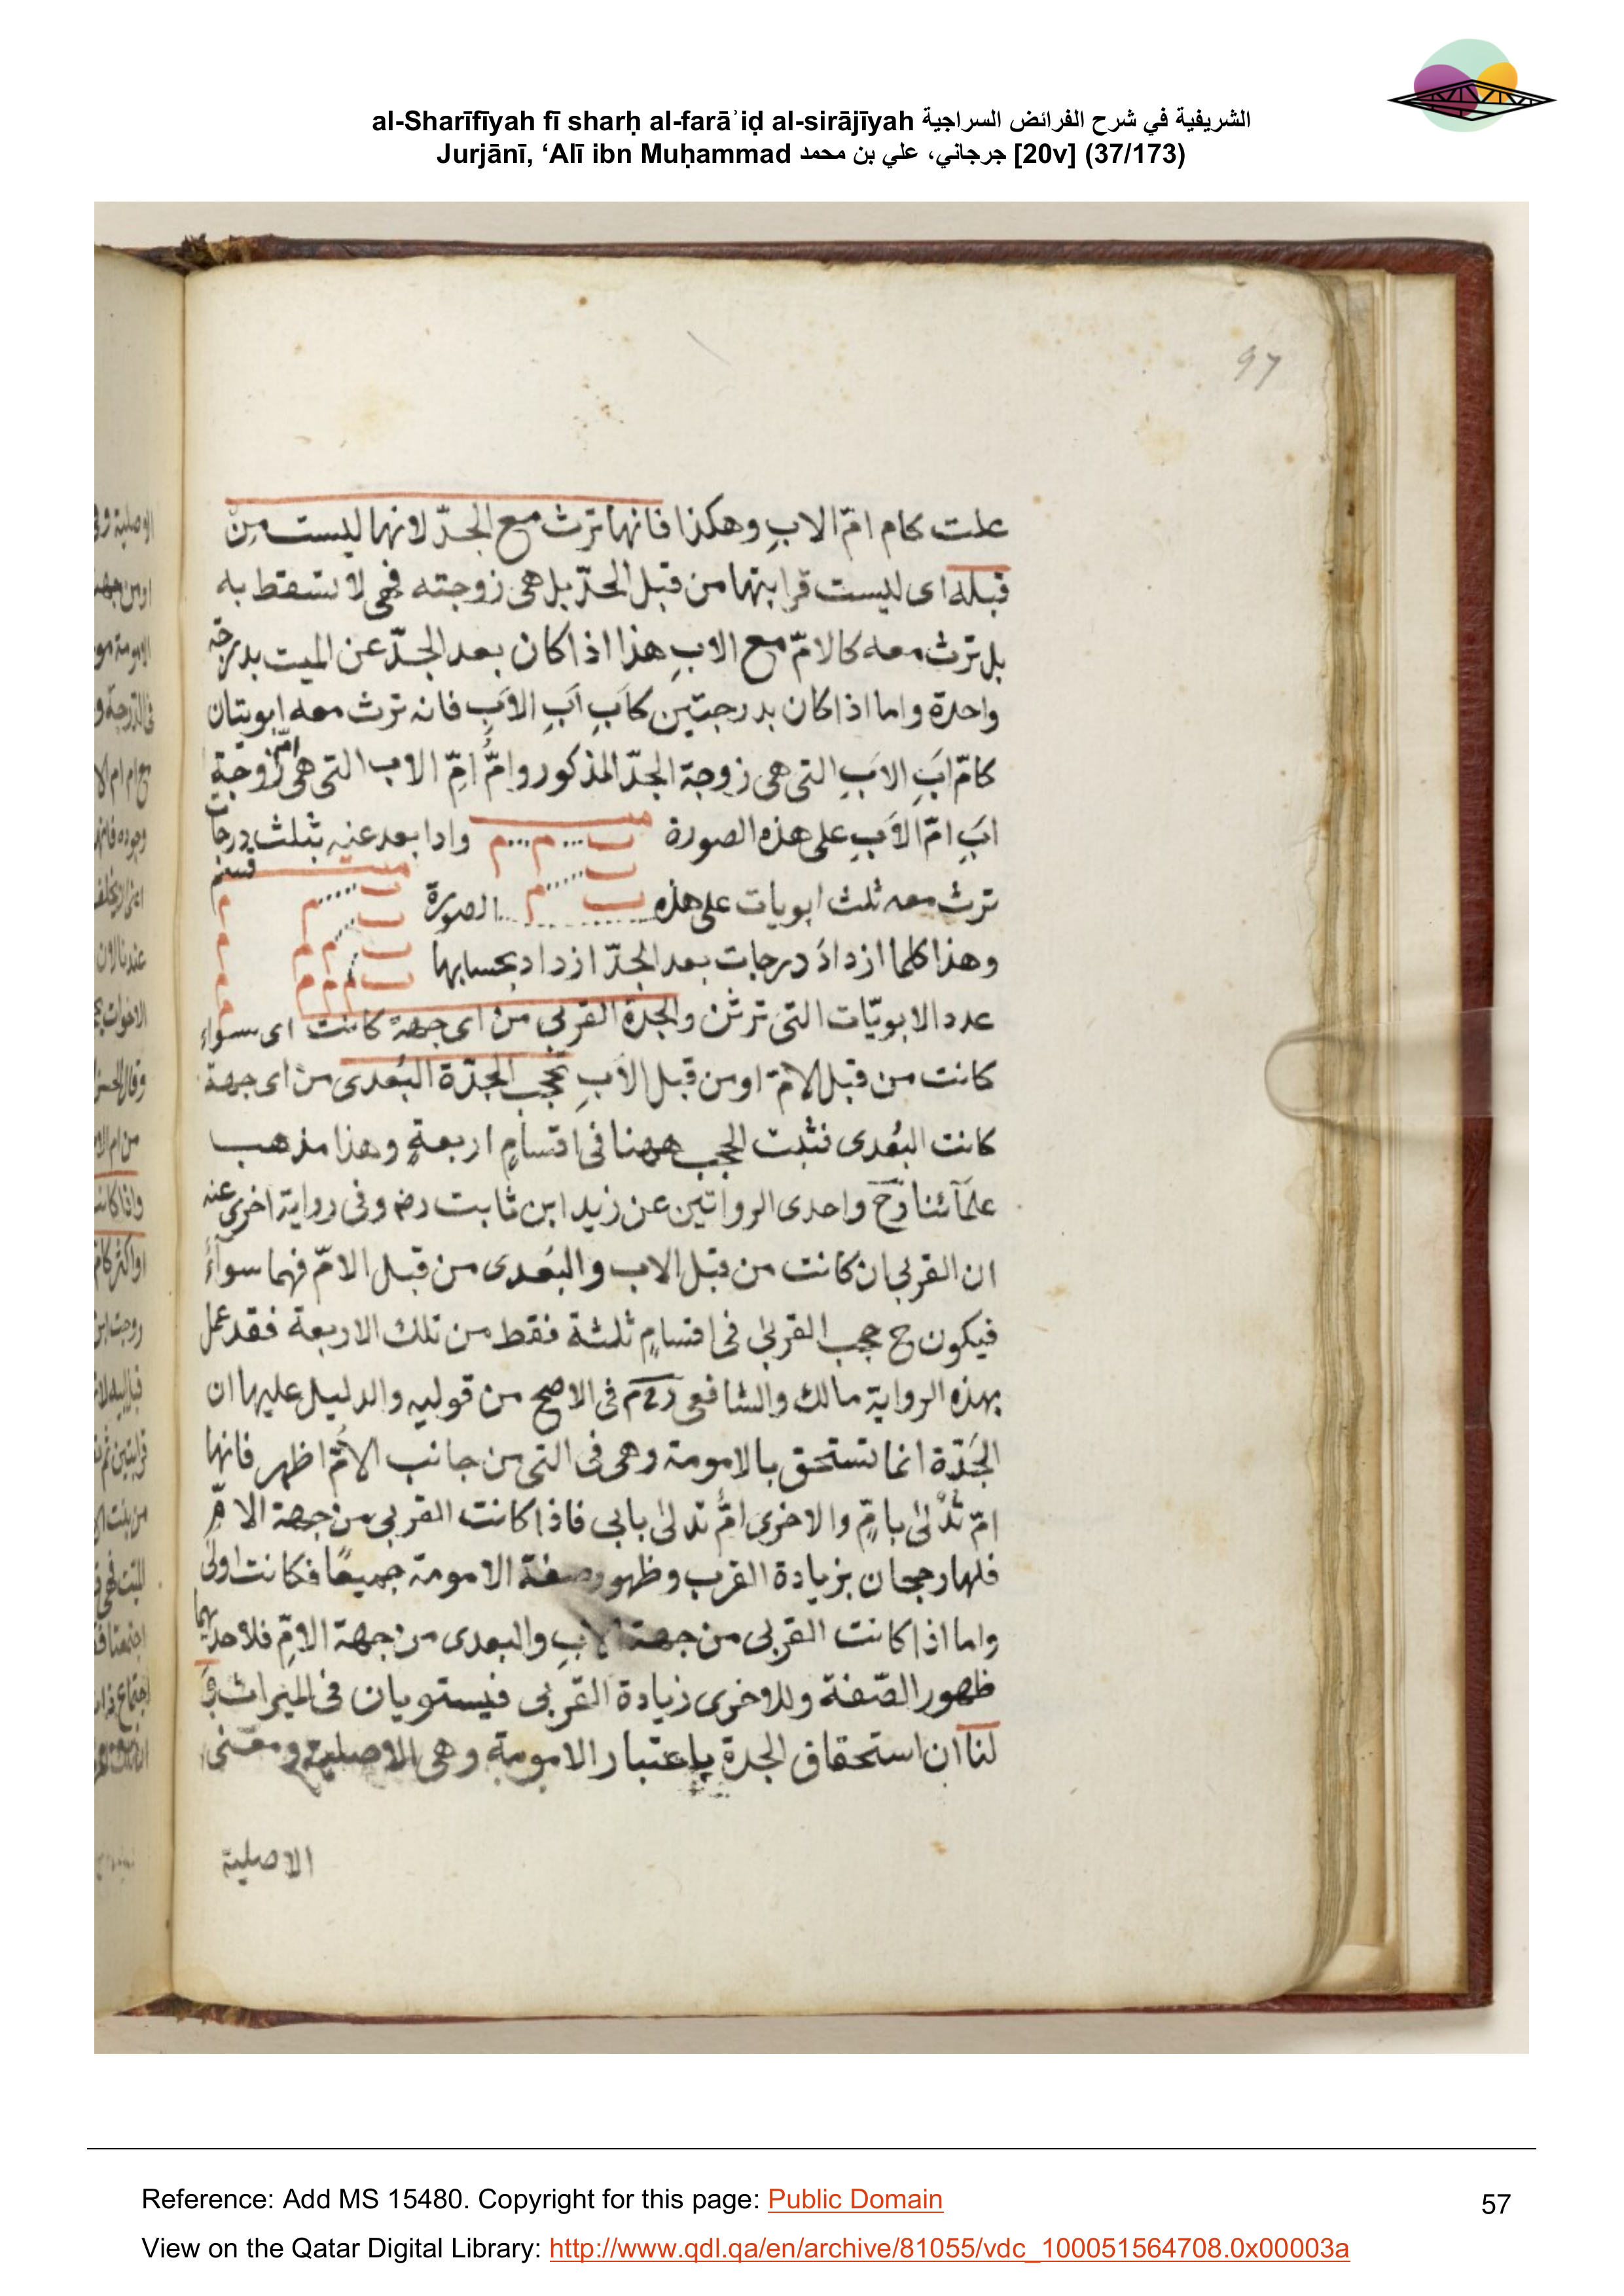 al-Sharīfīyah fī sharḥ al-farāʾiḍ al-sirājīyah الشريفية في شرح الفرائض السراجية
Jurjānī, ‘Alī ibn Muḥammad جرجاني، علي بن محمد [20v] (37/173)
97
علت كام امّ الابِ وهكذا فانها ترث مع الجدّ لانها ليست من
قبله اى ليست قرابتها من قبل الجدّ بل هى زوجته فهى لا تسقط به
بل ترث معه كالامّ مع الابِ هذا اذا كان بعد الجدّ عن الميت بدرجة
واحدة واما اذا كان بدرجتين كاَبِ اَبِ الاَبِ فانه ترث معه ابويتان
كامّ اَبِ الاَبِ التى هى زوجة الجدّ المذكور وامُّ امِّ الاب التى هى امّ زوجة
ابَِ امّ الاَبِ على هذه الصورة ب م م واذا بعد عنه بثلث درجات
ترث معه ثلث ابويات على هذه الصورة
وهذا كلما ازداد درجات بعد الجدّ ازداد بحسابها
عدد الابويّات التى ترثن والجدة القربى من اى جهة كانت اى سواء
كانت من قبل الامّ او من قبل الاَبِ تحجب الجدّة البُعدى من اى جهة
كانت البُعدى فثبت الحجب ههنا فى اقسامٍ اربعةٍ وهذا مذهب
علمآئنا رح واحدى الرواتين عن زيد ابن ثابت رض وفى رواية اخرى عنه
ان القربى ان كانت من قبل الاب والبُعدى من قبل الامّ فهما سوآءٌ
فيكون ح حجب القربى فى اقسامٍ ثلثة فقط من تلك الاربعة فقد عمل
بهذه الرواية مالك والشافعى فى الاصح من قوليه والدليل عليها ان
الجَدّة انما تستحق بالامومة وهى فى التى من جانب الاُمّ اظهر فانها
امّ تُدْلى بامٍّ والاخرى امُّ تدلى بابى فاذا كانت القربى من جهة الامِّ
فلها رجحان بزيادة القرب وظهور صفة الامومة جميعًا فكانت اولى
واما اذا كانت القربى من جهة الابِ والبعدى من جهة الامِّ فلاحديهما
ظهور الصّفة وللاخرى زيادة القربى فيستويان فى الميراث وَ
لنا ان استحقاق الجدة باعتبار الامومة وهى الاصلية ومعنى
الاصلية
Reference: Add MS 15480. Copyright for this page: Public Domain
57
View on the Qatar Digital Library: http://www.qdl.qa/en/archive/81055/vdc_100051564708.0x00003a